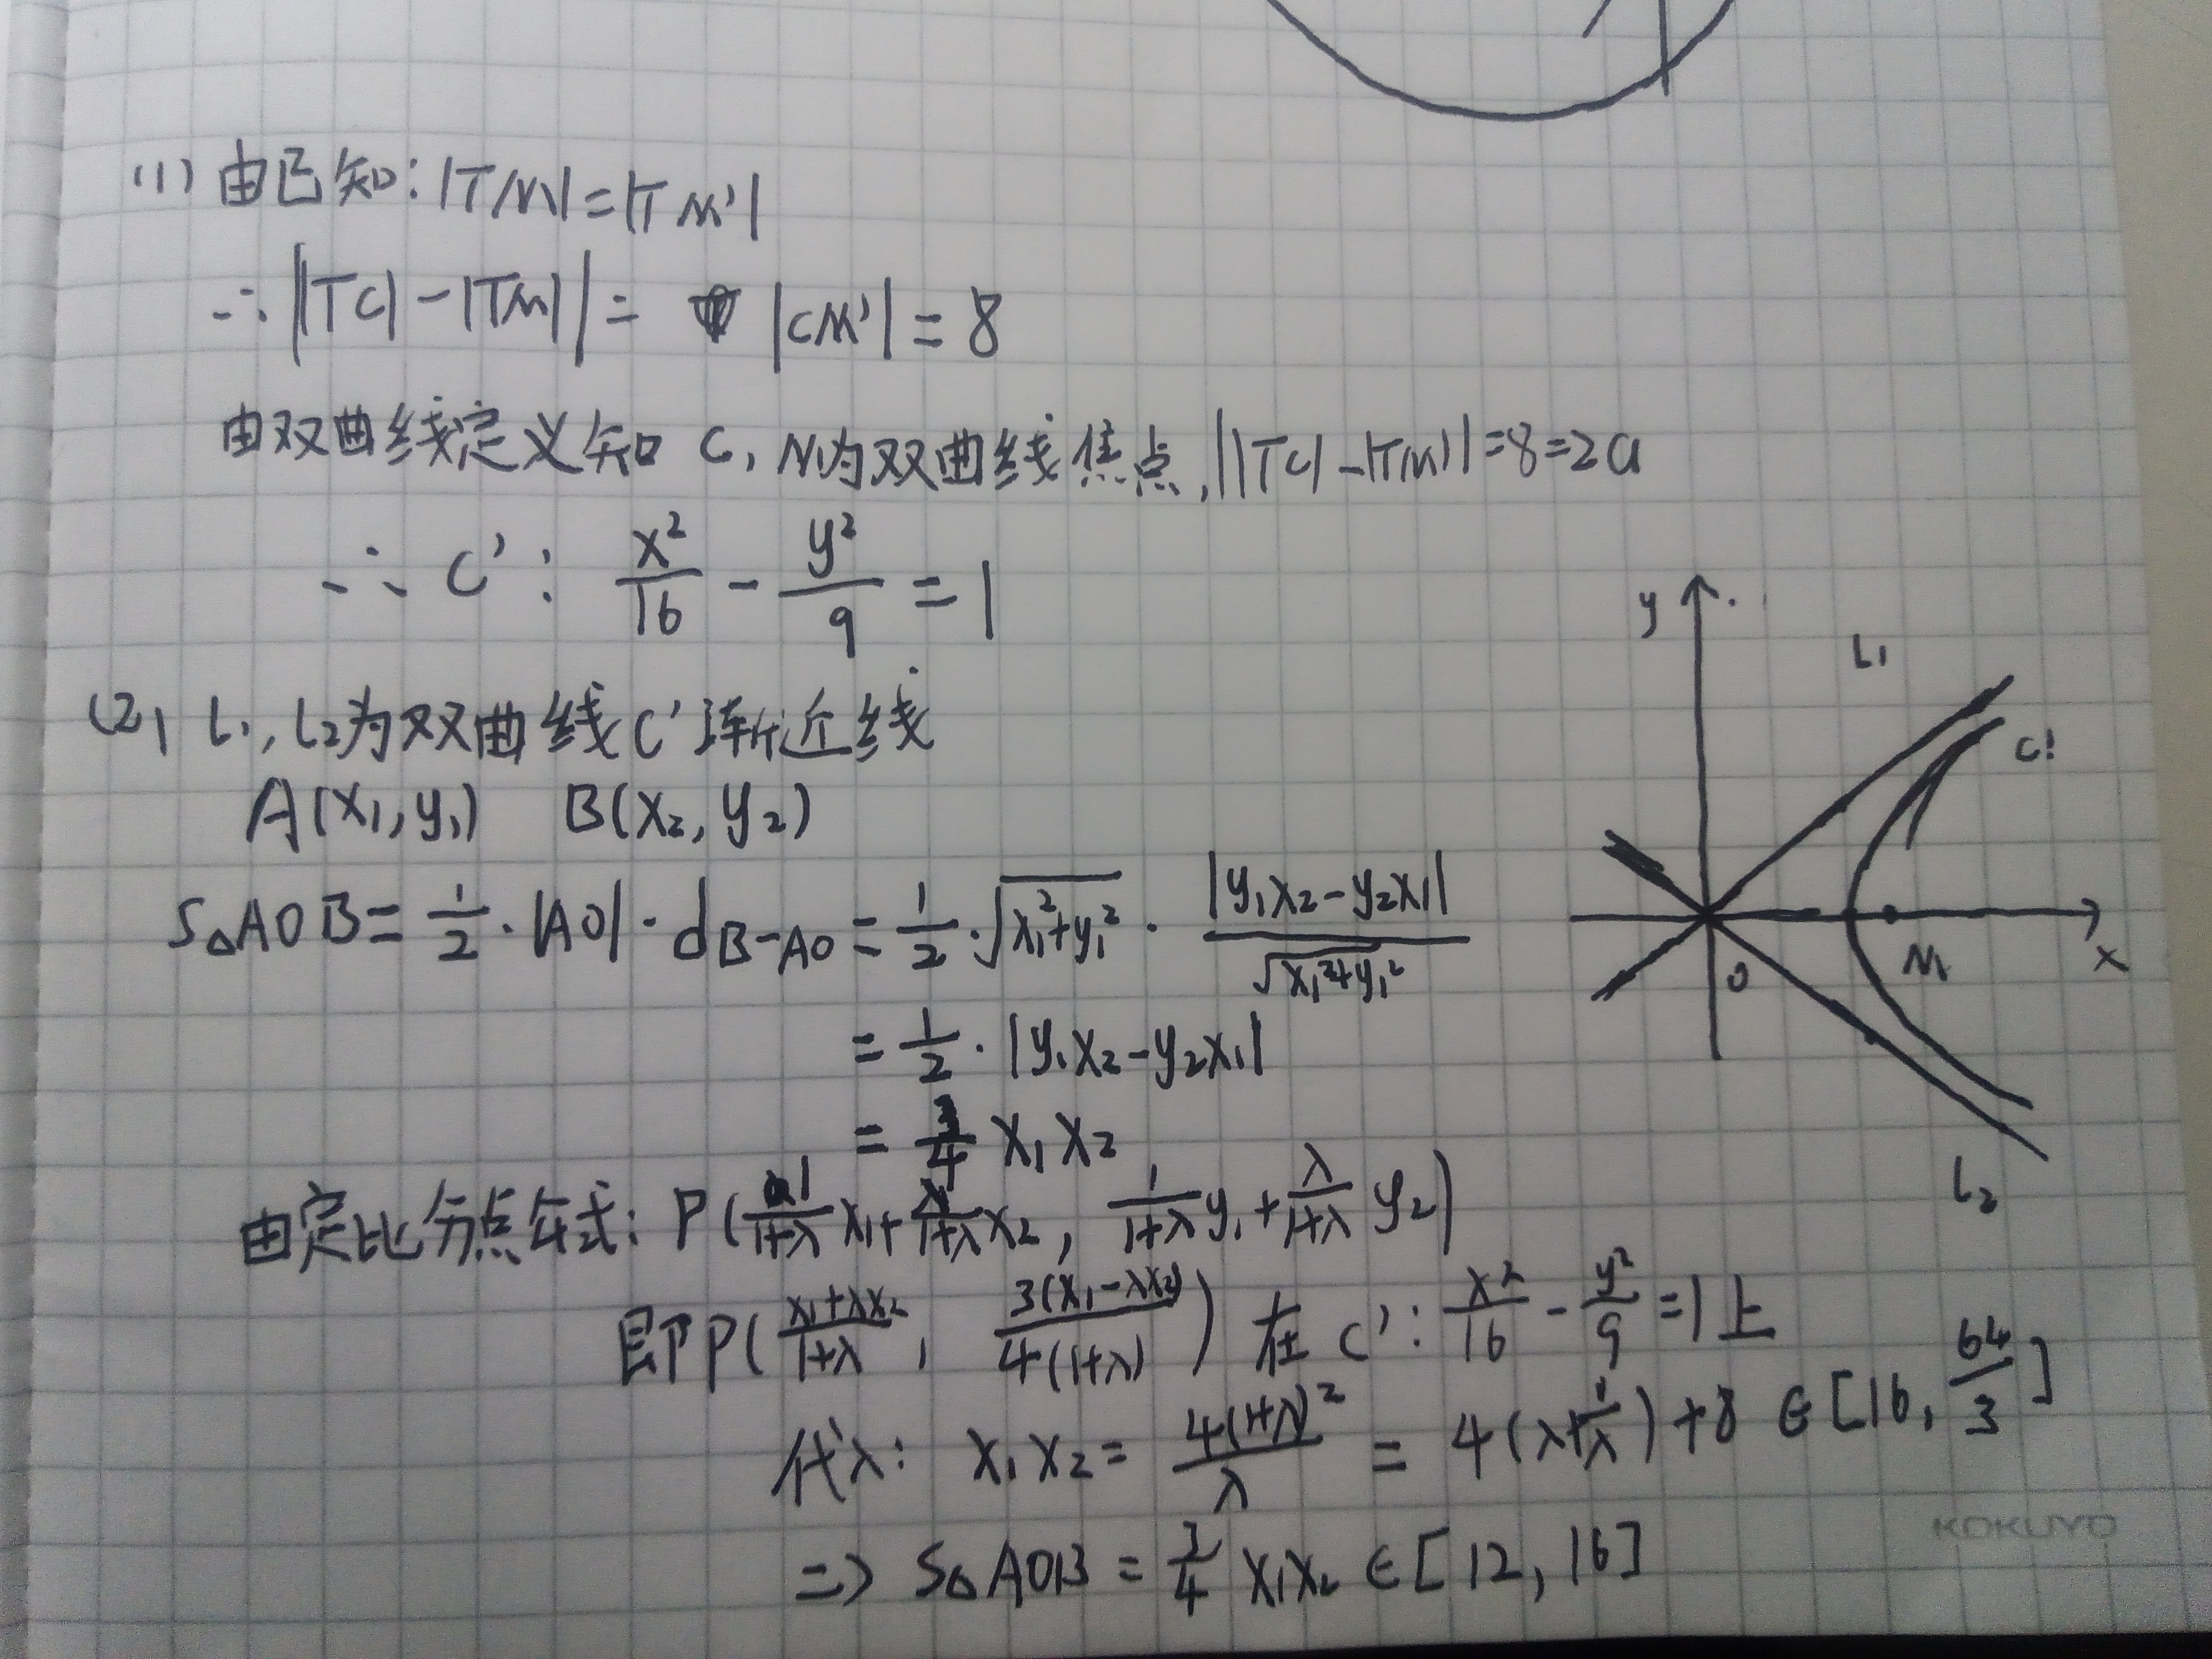 (1) 由已知: |TM|=|TM'|
∴ ||TC|-|TM||= |CM'|=8
由双曲线定义知 C, M为双曲线焦点, ||TC|-|TM||=8=2a
∴ C': x²/16 - y²/9 = 1
y
L₁
C'
O
M
x
L₂
(2) L₁, L₂为双曲线C'渐近线
A(x₁, y₁) B(x₂, y₂)
S△AOB = 1/2·|AO|·d_{B-AO} = 1/2·√(x₁²+y₁²)·|y₁x₂-y₂x₁|/√(x₁²+y₁²)
= 1/2·|y₁x₂-y₂x₁|
= 3/4 x₁x₂
由定比分点公式: P(1/(1+λ) x₁ + λ/(1+λ) x₂, 1/(1+λ) y₁ + λ/(1+λ) y₂)
即P((x₁+λx₂)/(1+λ), 3(x₁-λx₂)/(4(1+λ))) 在 C': x²/16 - y²/9 = 1上
代λ: x₁x₂ = 4(1+λ)²/λ = 4(λ+1/λ)+8 ∈ [16, 64/3]
⇒ S△AOB = 3/4 x₁x₂ ∈ [12, 16]
KOKUYO